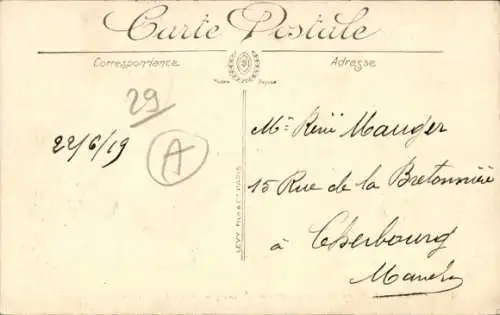 Carte Postale
Correspondance
Adresse
29
22/6/19
A
Mr René Mauger
15 Rue de la Bretonnière
à Cherbourg
Manche
LEVY FILS & Cie PARIS